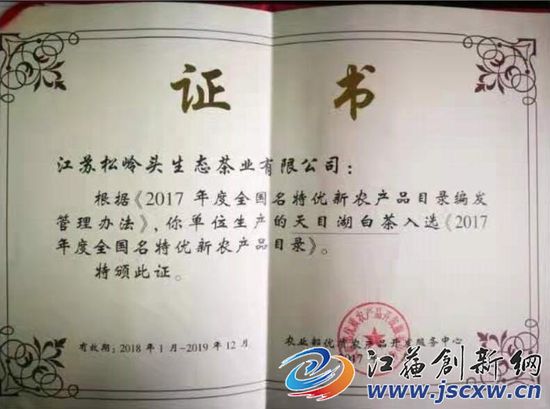 证书
江苏松岭头生态茶业有限公司：
根据《2017年度全国名特优新农产品目录编发
管理办法》，你单位生产的天目湖白茶入选《2017
年度全国名特优新农产品目录》。
特颁此证。
有效期：2018年1月-2019年12月
农业部优质农产品开发服务中心
2017
江苏创新网
www.jscxw.cn